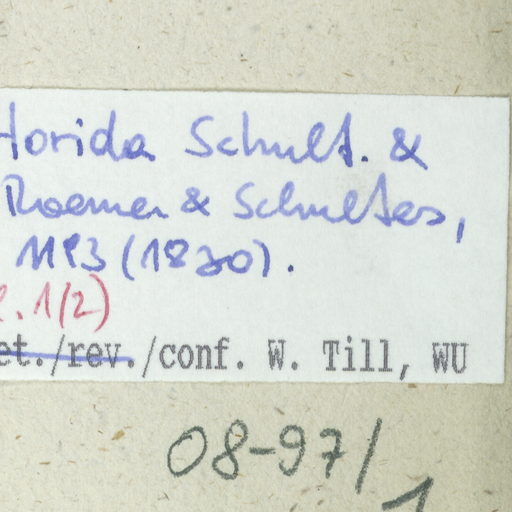 florida Schult. &
Roemer & Schultes,
1193 (1830).
. 1/2)
et./rev./conf. W. Till, WU
08-97/
1